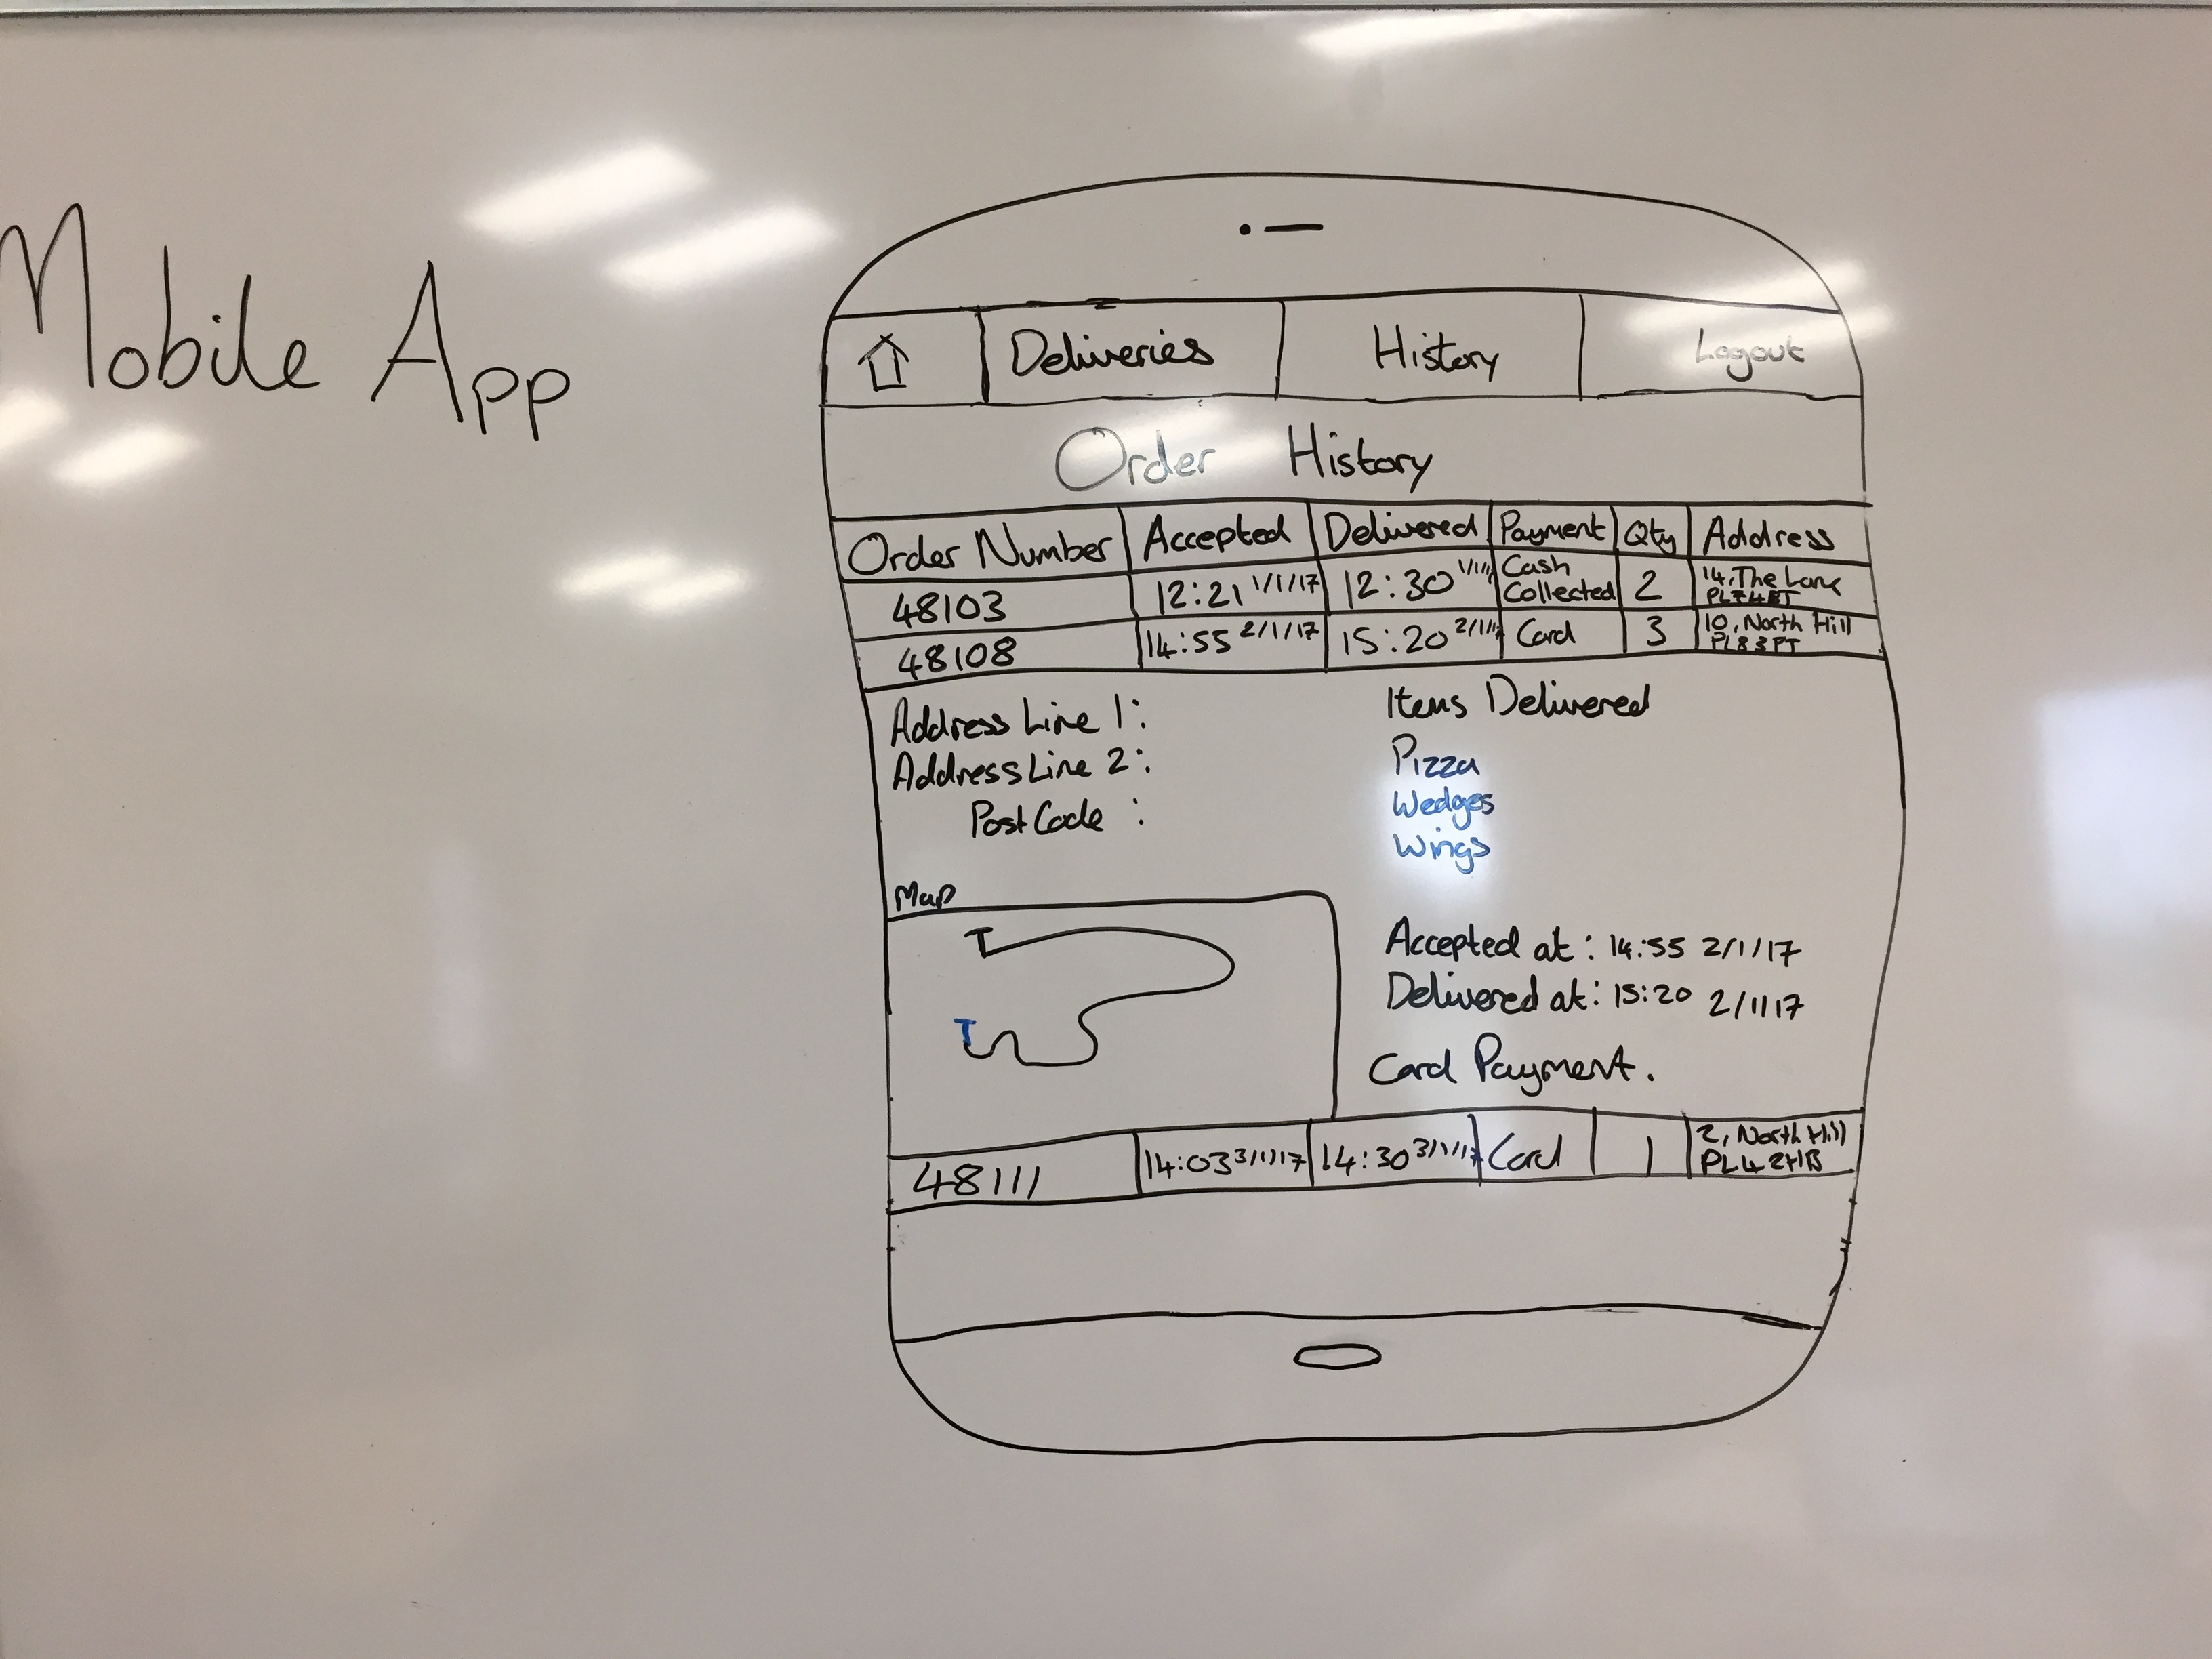 Mobile App
Deliveries History Logout
Order History
Order Number Accepted Delivered Payment Qty Address
48103 12:21 1/1/17 12:30 Cash Collected 2 14, The Lane
48108 14:55 2/1/17 15:20 Card 3 10, North Hill PL8 3PT
Address Line 1:
Address Line 2:
PostCode :
Items Delivered
Pizza
Wedges
Wings
Map
Accepted at: 14:55 2/1/17
Delivered at: 15:20 2/1/17
Card Payment.
48111 14:03 3/1/17 14:30 3/1/17 Card 1 2, North Hill PL4 2HB